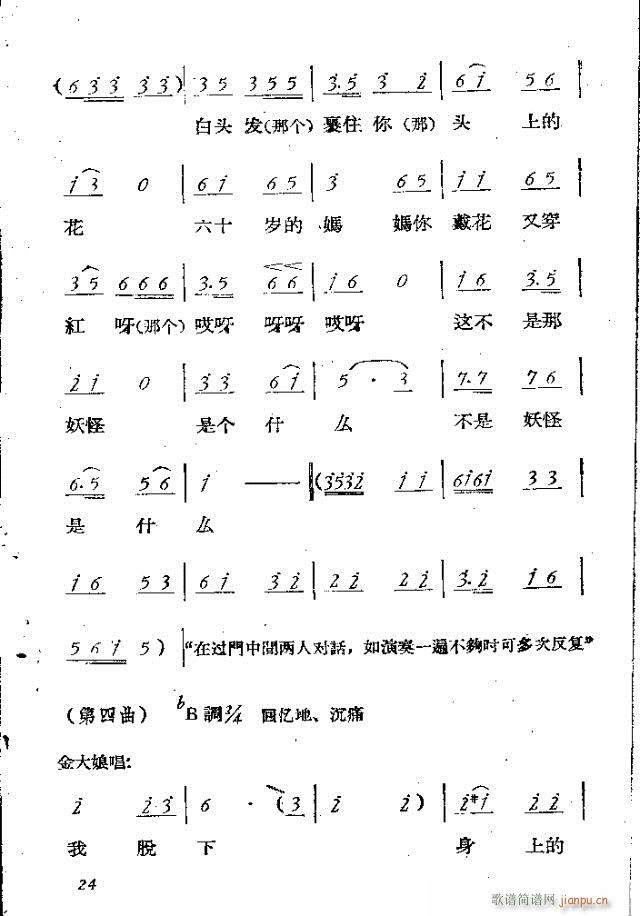 (6 3 3 3 3) | 3 5 3 5 5 | 3·5 3 2 | 6 1 5 6 |
白头 发(那个) 裹住 你(那) 头 上的
1 3 0 | 6 1 6 5 | 3 6 5 | 1 1 6 5 |
花 六十 岁的 媽 媽你 戴花 又穿
3 5 6 6 6 | 3·5 6 6 | 1 6 0 | 1 6 3·5 |
紅 呀(那个) 哎呀 呀呀 哎呀 这不 是那
2 1 0 | 3 3 6 1 | 5 · 3 | 7·7 7 6 |
妖怪 是个 什 么 不是 妖怪
6·5 5 6 | 1 —— | (3532 1 1 | 6161 3 3 |
是 什 么
1 6 5 3 | 6 1 3 2 | 2 2 2 2 | 3·2 1 6 |
5 6 1 5 ) | “在过門中間两人对話，如演奏一遍不夠时可多次反复”
(第四曲) bB調2/4 回忆地、沉痛
金大娘唱：
2 2 3 | 6 · (3 | 2 2 ) | 2 #1 2 2 |
我 脫 下 身 上的
24
歌谱简谱网
jianpu.cn